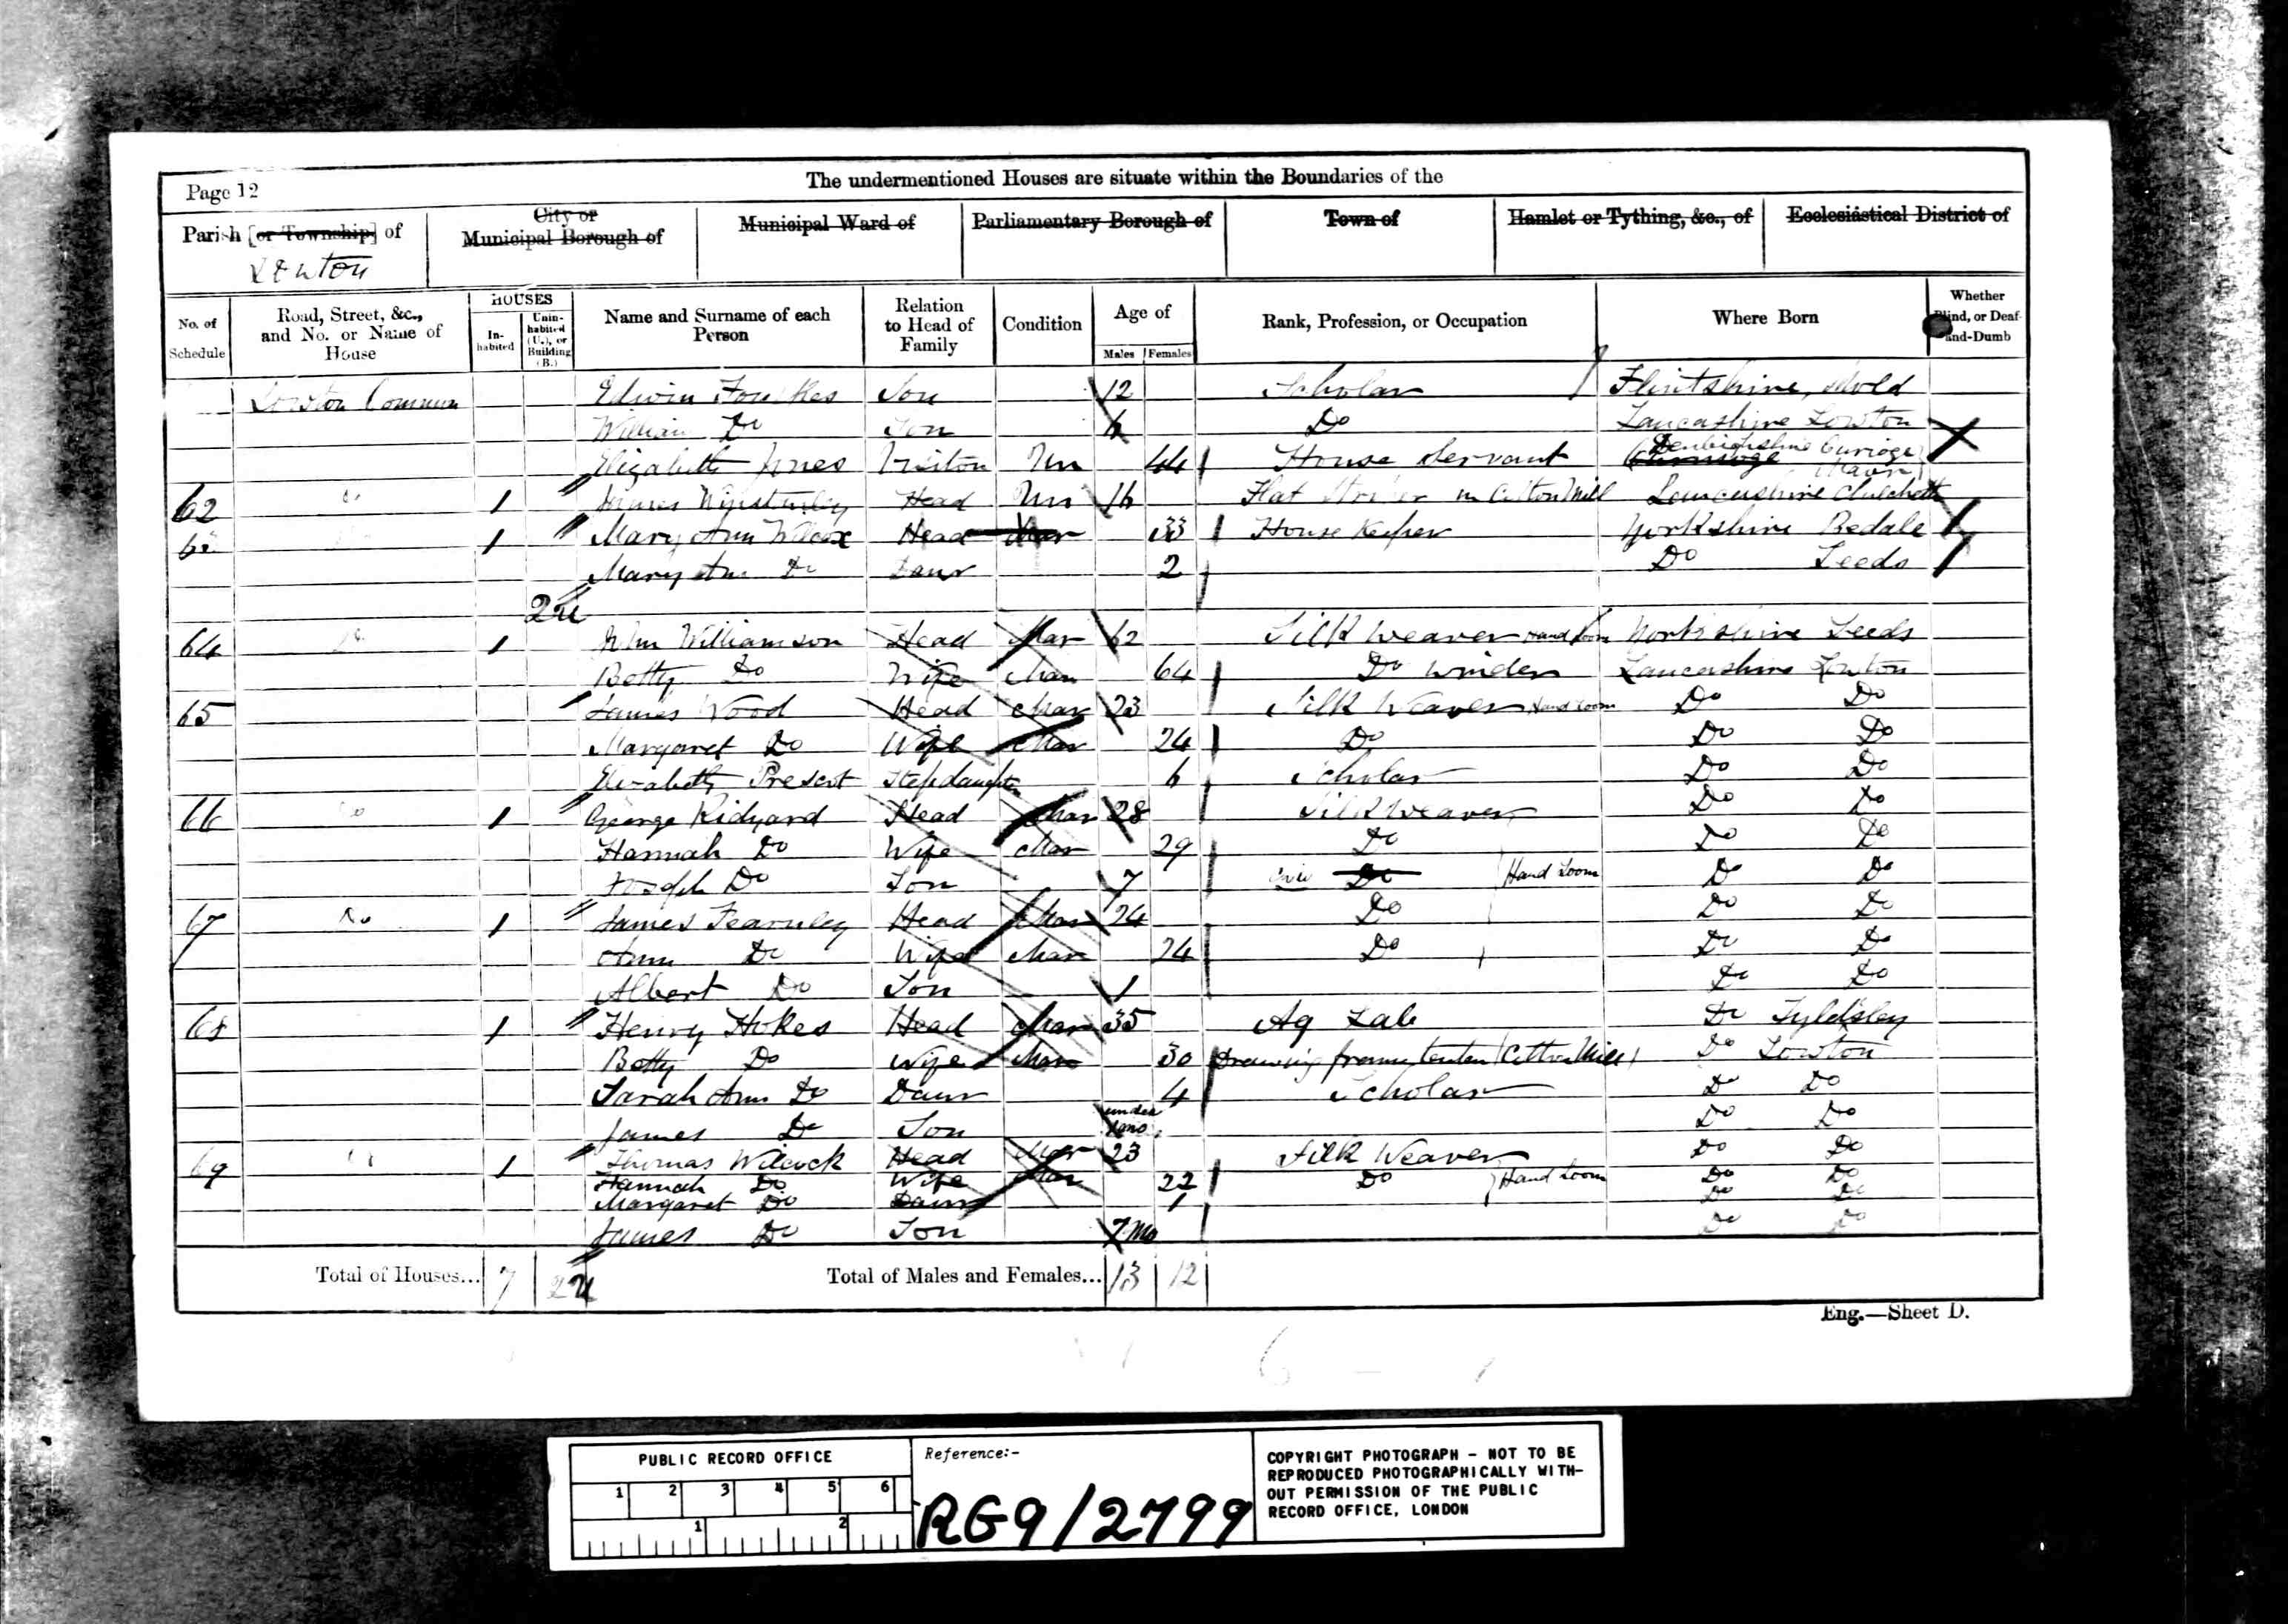 Page 12
The undermentioned Houses are situate within the Boundaries of the
Parish [or Township] of
Lowton
City or Municipal Borough of
Municipal Ward of
Parliamentary Borough of
Town of
Hamlet or Tything, &c., of
Ecclesiastical District of
No. of Schedule
Road, Street, &c., and No. or Name of House
HOUSES
In-habited
Unin-habited (U.), or Building (B.)
Name and Surname of each Person
Relation to Head of Family
Condition
Age of
Males
Females
Rank, Profession, or Occupation
Where Born
Whether Blind, or Deaf-and-Dumb
Lowton Common Edwin Foulkes Son 12 Scholar Flintshire, Mold
William Do Son Do Lancashire Lowton
Elizabeth Jones Visitor Un 44 House Servant Denbighshire
62 1 James Head Un 16 Flat in Cotton Mill Lancashire Culcheth
1 Mary Ann Wilcox Head Mar 33 House Keeper Yorkshire Bedale
Mary Ann Do Daur 2 Do Leeds
64 1 John Williamson Head Mar 62 Silk Weaver Hand Loom Yorkshire Leeds
Betty Do Wife Mar 64 Do Winder Lancashire Lowton
65 James Wood Head Mar 23 Silk Weaver Hand Loom Do Do
Margaret Do Wife Mar 24 Do Do Do
Elizabeth Prescot Stepdaughter 6 Scholar Do Do
66 Do 1 George Ridyard Head Mar 28 Silk Weaver Do Do
Hannah Do Wife Mar 29 Do Do Do
Joseph Do Son 7 Do Hand Loom Do Do
67 Do 1 James Fearnley Head Mar 24 Do Do Do
Ann Do Wife Mar 24 Do Do Do
Albert Do Son 1 Do Do
68 1 Henry Hokes Head Mar 35 Ag Lab Do Tyldsley
Betty Do Wife Mar 30 Drawing frame tenter (Cotton Mill) Do Lowton
Sarah Ann Do Daur 4 Scholar Do Do
James Do Son under Do Do
69 1 Thomas Wilcock Head Mar 23 Silk Weaver Do Do
Hannah Do Wife Mar 22 Do Hand Loom Do Do
Margaret Do Daur 1 Do Do
James Do Son 7 Mo Do Do
Total of Houses... 7
Total of Males and Females... 13 12
Eng.—Sheet D.
PUBLIC RECORD OFFICE
1 2 3 4 5 6
1 2
Reference:-
RG9/2799
COPYRIGHT PHOTOGRAPH - NOT TO BE
REPRODUCED PHOTOGRAPHICALLY WITH-
OUT PERMISSION OF THE PUBLIC
RECORD OFFICE, LONDON